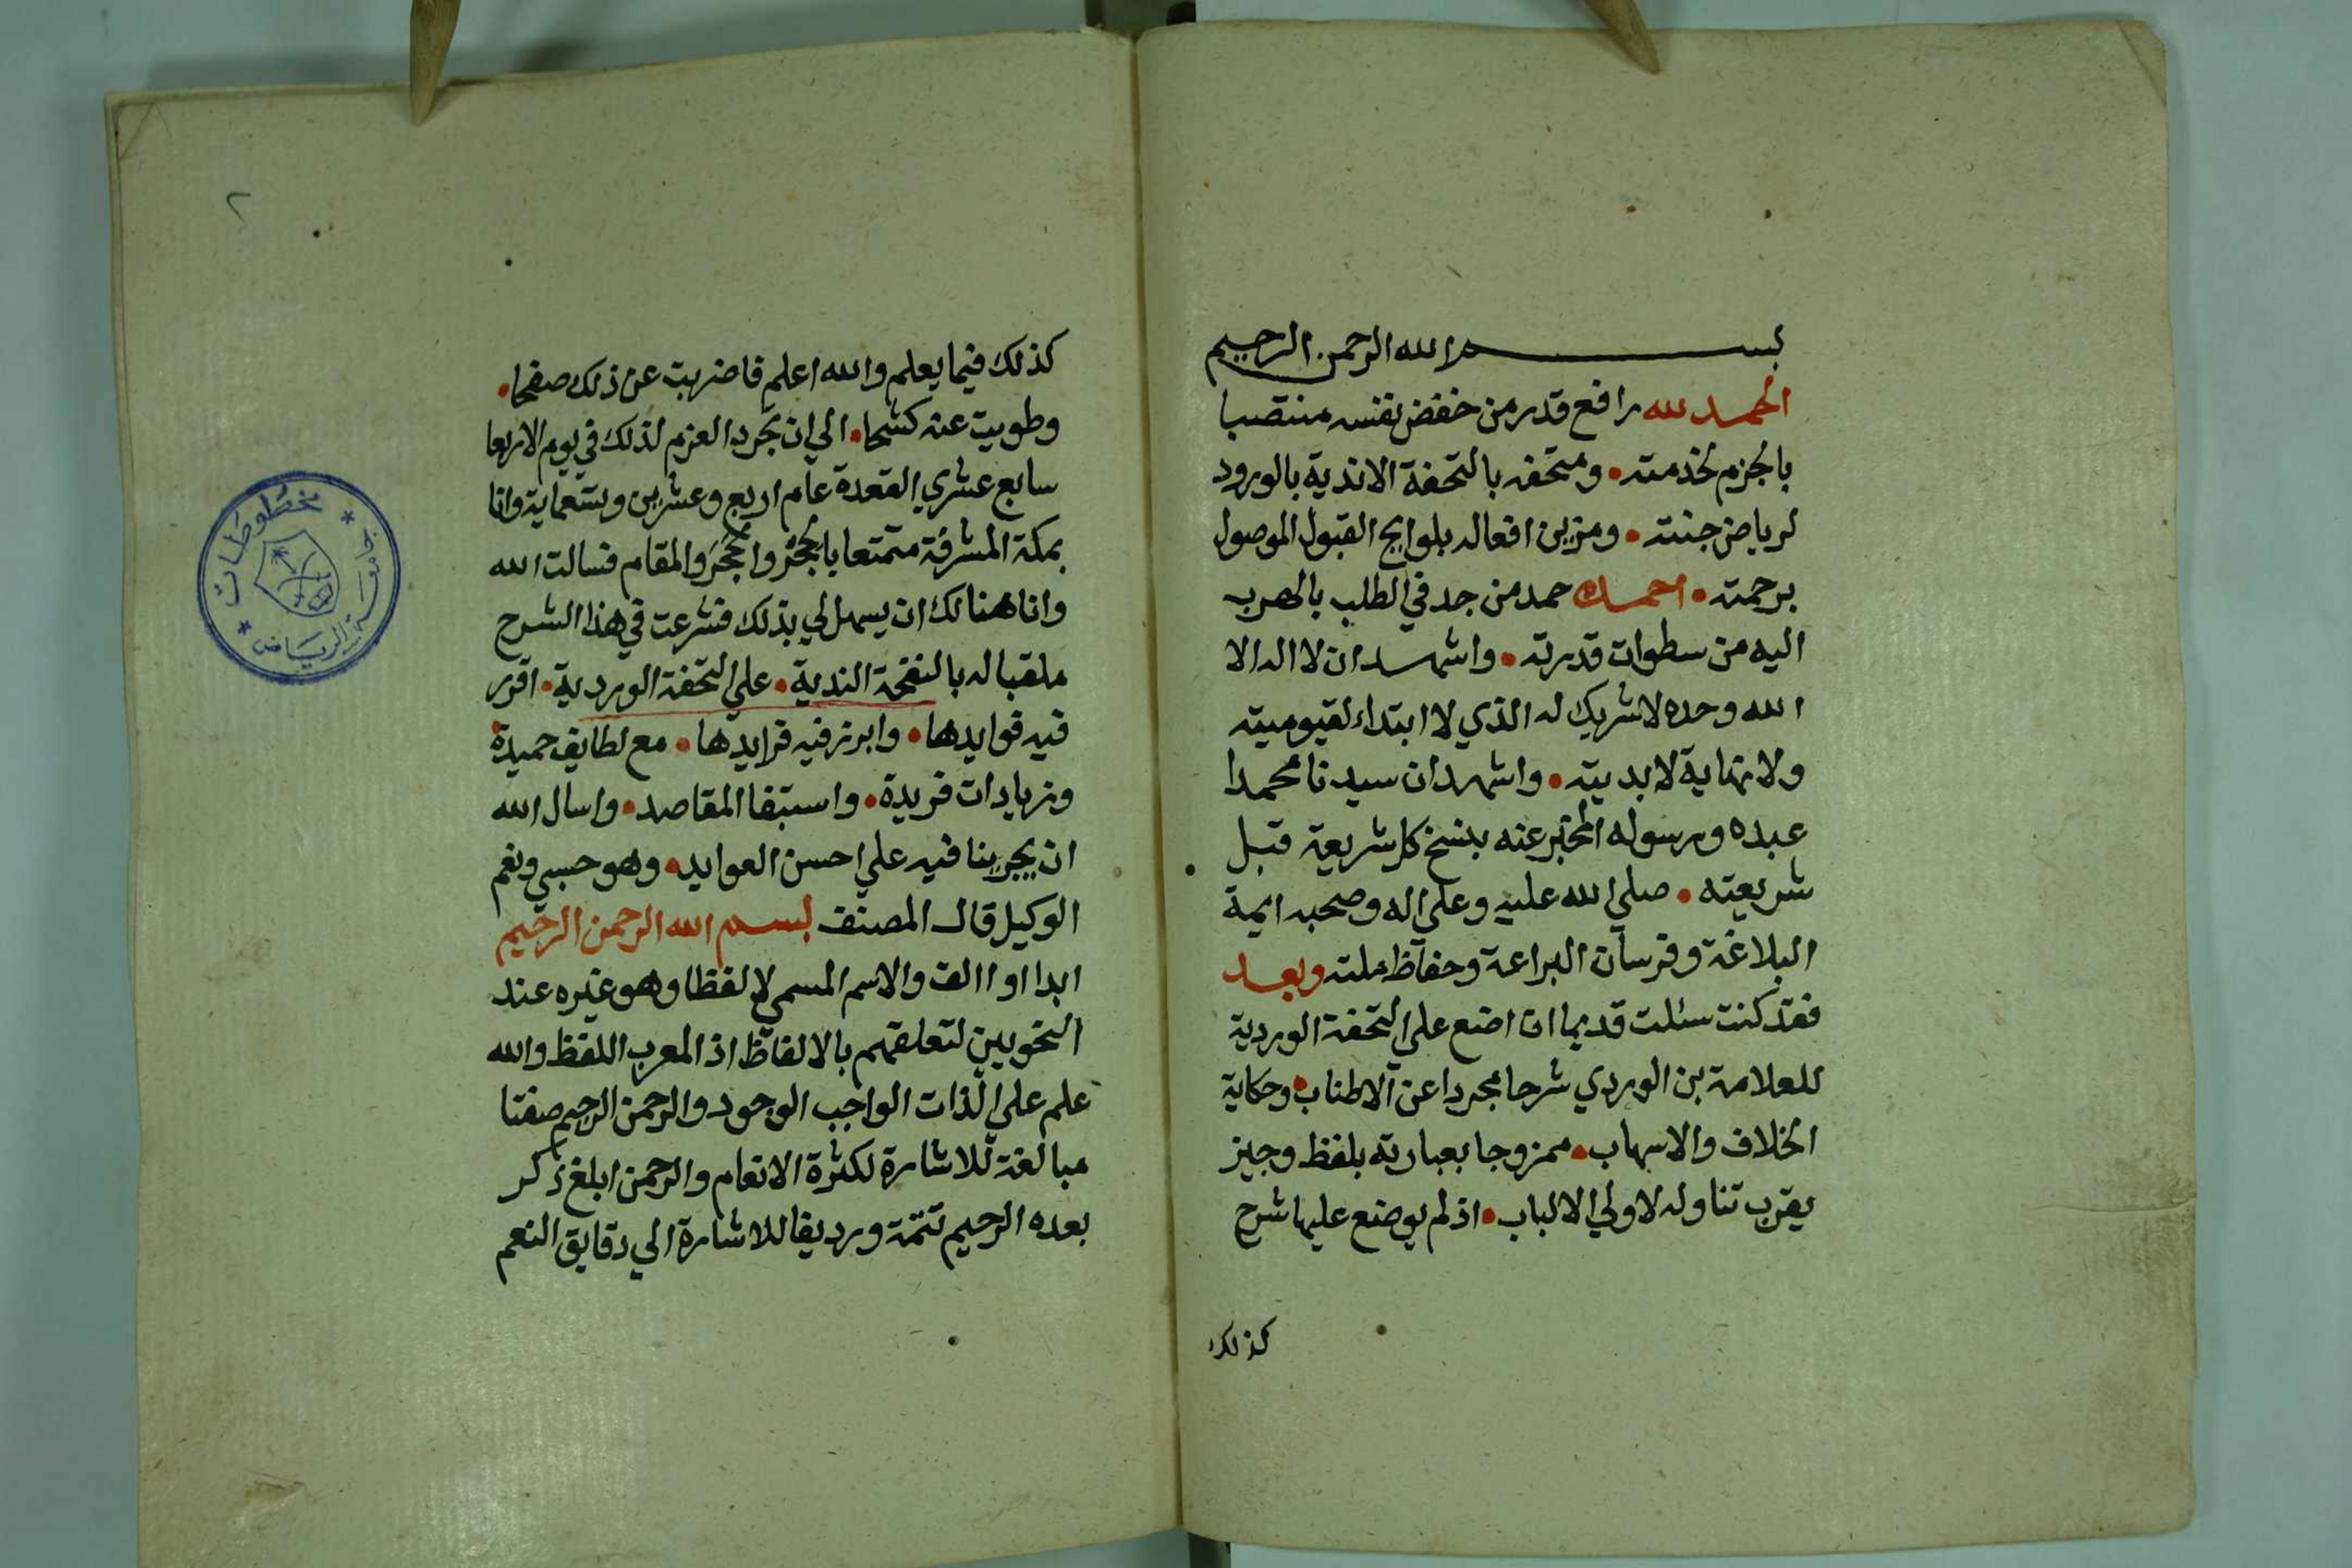 بسم الله الرحمن الرحيم
الحمد لله رافع قدر من خفض نفسه منتصبا
بالجزم لخدمته • ومتحفه بالتحفة الاندية بالورود
لرياض جنته • ومزين افعاله بلوايح القبول الموصول
برحمته • احمده حمد من جد في الطلب بالهرب
اليه من سطوات قدرته • واشهد ان لا اله الا
الله وحده لا شريك له الذي لا ابتداء لقيوميته
ولا نهاية لابديته • واشهد ان سيدنا محمدا
عبده ورسوله المخبر عنه بنسخ كل شريعة قبل
شريعته • صلي الله عليه وعلي اله وصحبه ايمة
البلاغة وفرسان البراعة وحفاظ ملته وبعد
فقد كنت سئلت قديما ان اضع علي التحفة الوردية
للعلامة بن الوردي شرحا مجردا عن الاطناب • وحكاية
الخلاف والاسهاب • ممزوجا بعبارته بلفظ وجيز
يقرب تناوله لاولي الالباب • اذ لم يوضع عليها شرح
كذلك
٢
كذلك فيما يعلم والله اعلم فاضربت عن ذلك صفحا •
وطويت عنه كشحا • الي ان تجرد العزم لذلك في يوم الاربعا
سابع عشري القعدة عام اربع وعشرين وتسعماية وانا
بمكة المشرفة متمتعا بالحجر والحجر والمقام فسالت الله
وانا هنالك ان يسهل لي بذلك فشرعت في هذا الشرح
ملقبا له بالنفحة الندية • علي التحفة الوردية • اقرر
فيه فوايدها • وابرز فيه فرايدها • مع لطايف حميدة
وزيادات فريدة • واستبفا المقاصد • واسال الله
ان يجرينا فيه علي احسن العوايد • وهو حسبي ونعم
الوكيل قال المصنف بسم الله الرحمن الرحيم
ابدا او االف والاسم المسمي لا لفظا وهو غيره عند
النحويين لتعلقهم بالالفاظ اذ المعرب اللفظ والله
علم علي الذات الواجب الوجود والرحمن الرحيم صفتا
مبالغة للاشارة لكثرة الانعام والرحمن ابلغ ذكر
بعده الرحيم تتمة ورديفا للاشارة الي دقايق النعم
مخطوطات
الرياض